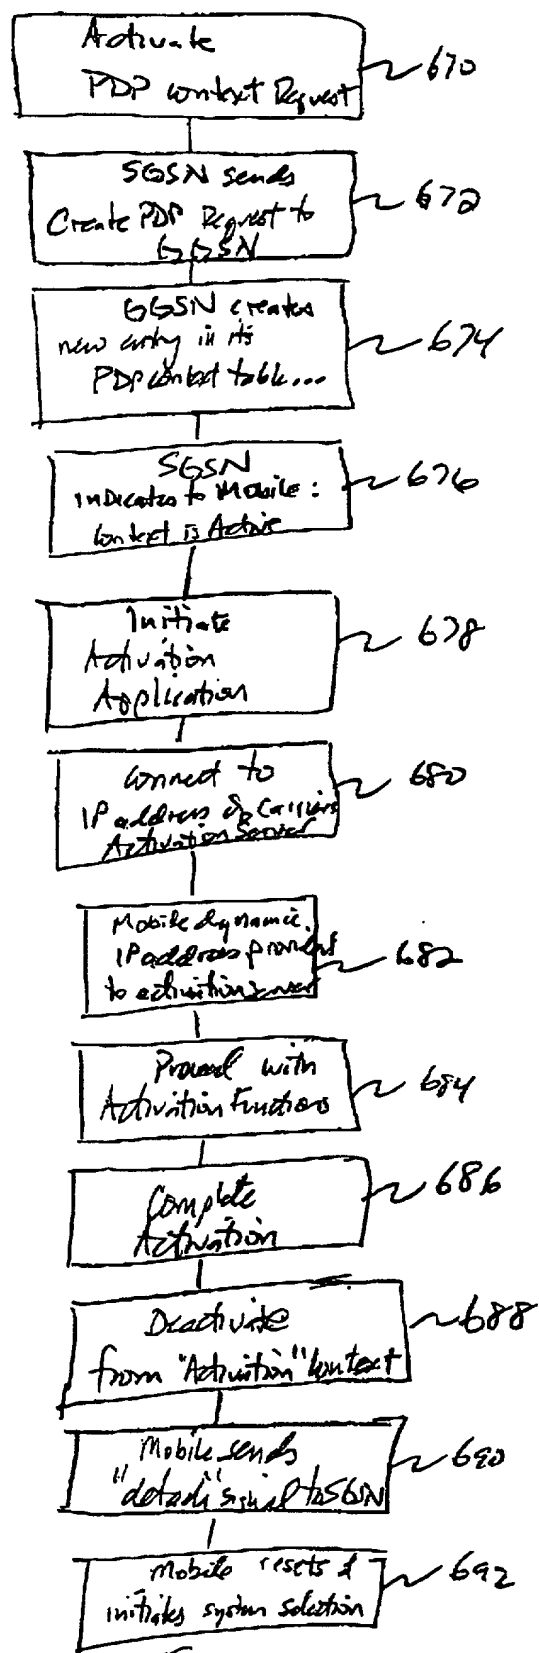 Activate
PDP context Request
670
SGSN sends
Create PDP Request to
GGSN
672
GGSN creates
new entry in its
PDP context table...
674
SGSN
Indicates to Mobile:
Context is Active
676
Initiate
Activation
Application
678
Connect to
IP address of Carriers
Activation Server
680
Mobile dynamic
IP address provided
to activation server
682
Proceed with
Activation Functions
684
Complete
Activation
686
Deactivate
from "Activation" Context
688
Mobile sends
"detach" signal to SGSN
690
Mobile resets &
initiates system selection
692